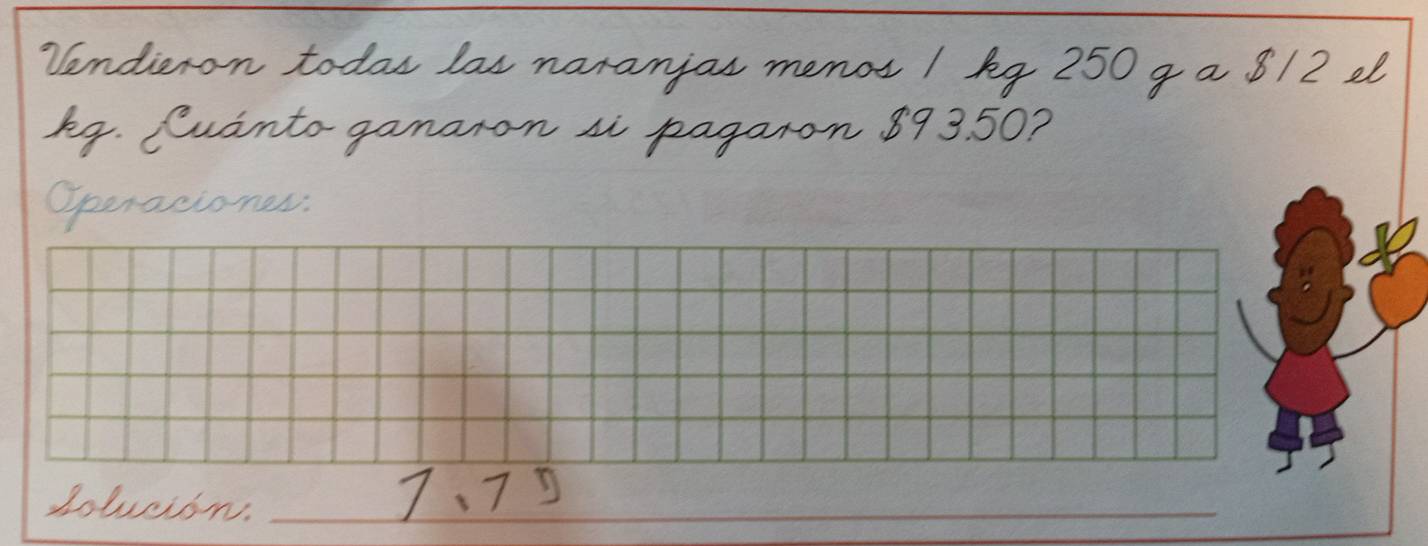 Vendieron todas las naranjas menos 1 kg 250 g a $12 el
kg. ¿Cuánto ganaron si pagaron $93.50?
Operaciones:
Solución: